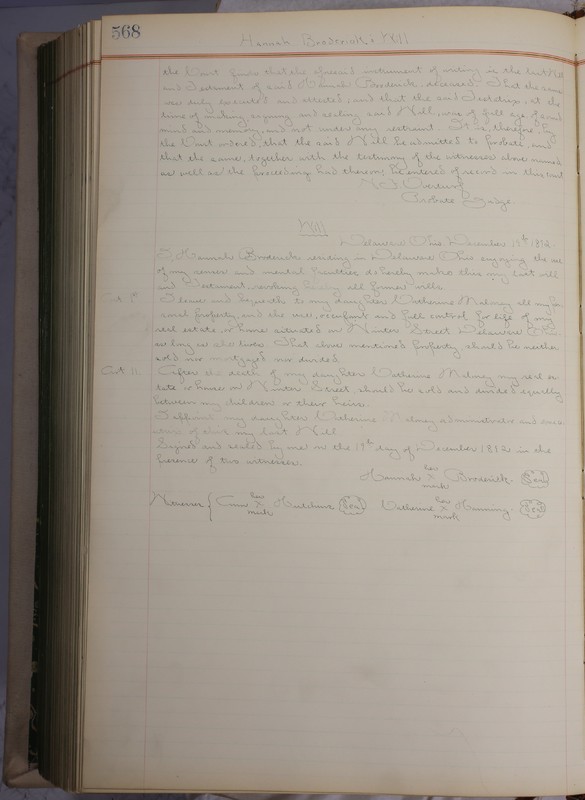 568
Hannah Broderick's Will
the Court finds that the aforesaid instrument of writing is the last Will
and Testament of said Hannah Broderick, deceased. That the same
was duly executed and attested, and that the said Testatrix, at the
time of making signing and sealing said Will, was of full age, of sound
mind and memory, and not under any restraint. It is, therefore, by
the Court ordered, that the said Will be admitted to probate, and
that the same, together with the testimony of the witnesses above named
as well as the proceedings had thereon, be entered of record in this Court
Overturf
Probate Judge
Will
Delaware Ohio December 19th 1892.
I, Hannah Broderick residing in Delaware Ohio enjoying the use
of my senses and mental faculties do hereby make this my last will
and Testament, revoking hereby all former wills.
I leave and bequeath to my daughter Catherine Maloney all my per-
sonal property, and the use, occupancy and full control for life of my
real estate, or home situated on Winter Street Delaware Ohio
as long as she lives. That above mentioned property, should be neither
sold nor mortgaged nor divided.
Art. II. After the death of my daughter Catherine Maloney my real es-
tate or home on Winter Street, should be sold and divided equally
between my children or their heirs.
I my daughter Catherine Maloney administrator and exec-
of this my last Will.
Signed and sealed by me on the 19th day of December 1892 in the
presence of two witnesses.
Hannah her X mark Broderick. Seal
Witnesses { her X mark Hutchins Seal Catherine her X mark Seal